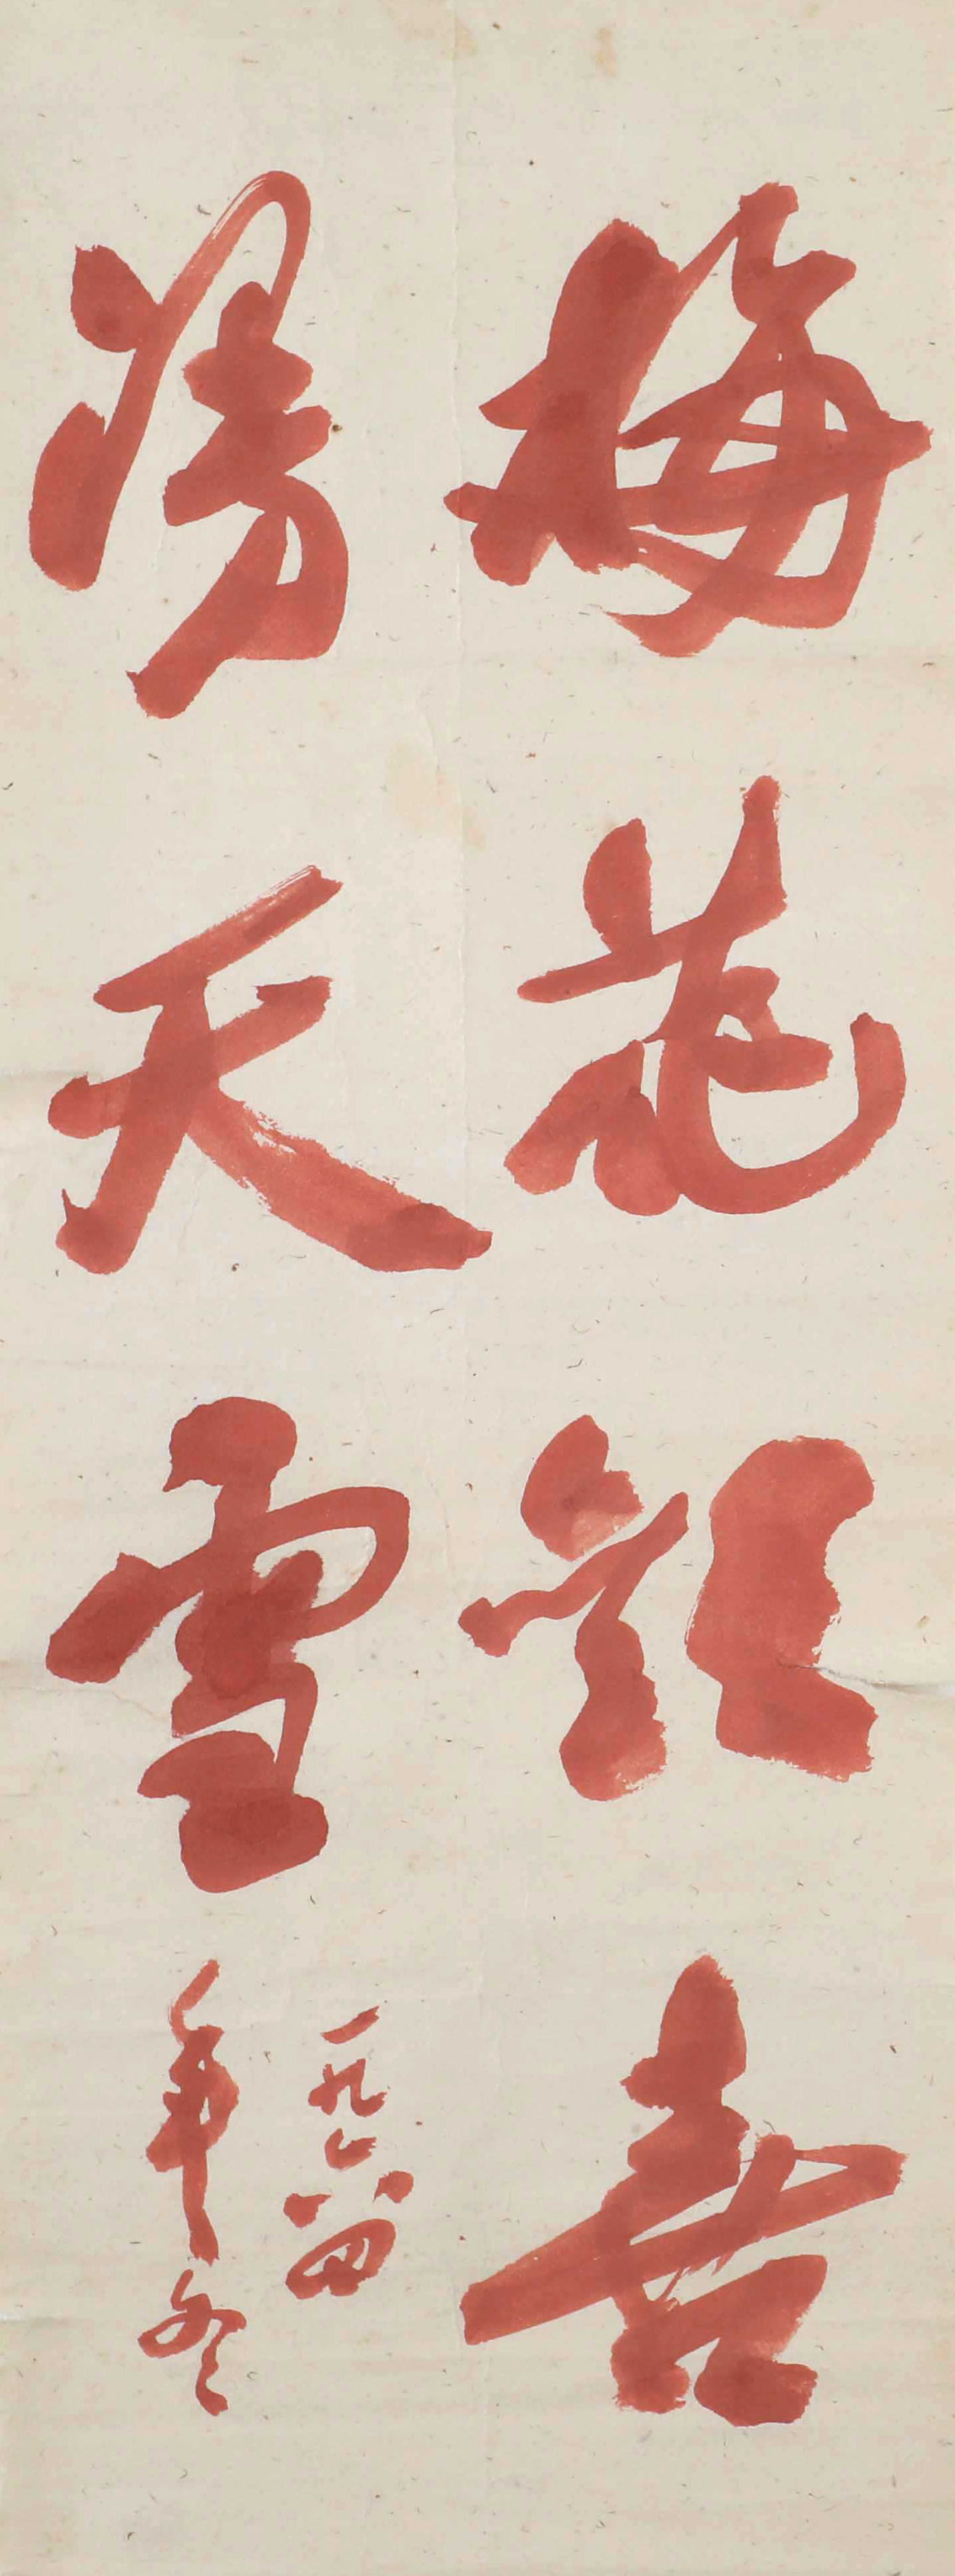 梅花歡喜
漫天雪
一九六四
年冬